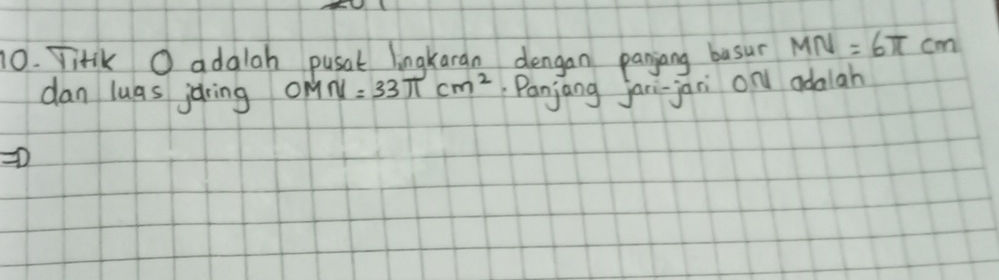 10. Titik O adalah pusat lingkaran dengan panjang busur MN = 6π cm
dan luas jaring OMN = 33π cm². Panjang jari-jari ON adalah
⇒